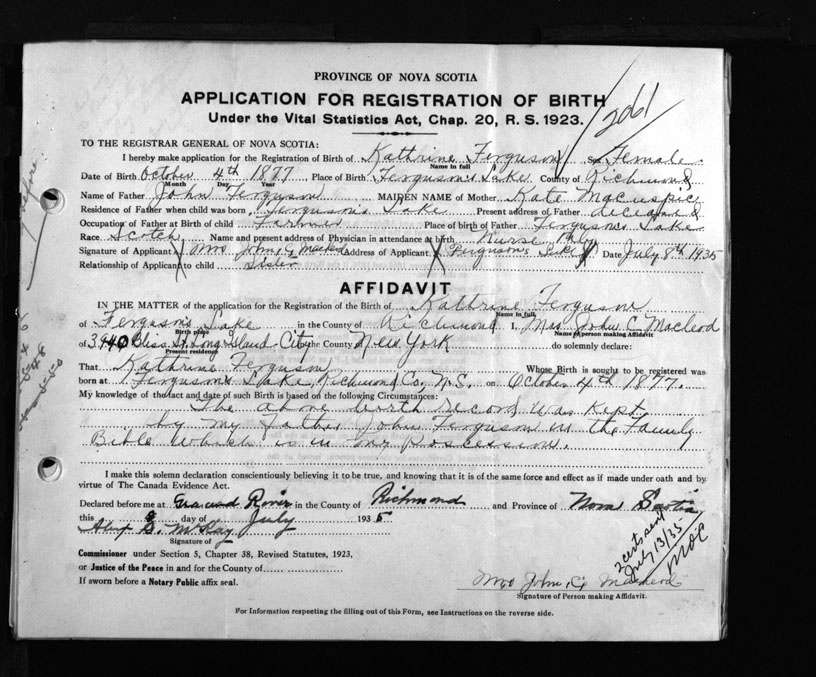 PROVINCE OF NOVA SCOTIA
APPLICATION FOR REGISTRATION OF BIRTH
2061
Under the Vital Statistics Act, Chap. 20, R. S. 1923.
TO THE REGISTRAR GENERAL OF NOVA SCOTIA:
I hereby make application for the Registration of Birth of Kathrine Ferguson Sex Female.
Name in full
Date of Birth October 4th 1877 Place of Birth Ferguson's Lake County of Richmond
Month Day Year
Name of Father John Ferguson MAIDEN NAME of Mother Kate
Residence of Father when child was born Ferguson's Lake Present address of Father deceased
Occupation of Father at Birth of child Farmer Place of birth of Father Ferguson's Lake
Race Scotch Name and present address of Physician in attendance at birth Nurse only
Signature of Applicant Mrs John C McLeod Address of Applicant Ferguson's Lake Date July 8th 1935
Relationship of Applicant to child Sister
AFFIDAVIT
IN THE MATTER of the application for the Registration of the Birth of Kathrine Ferguson
Name in full
of Ferguson's Lake in the County of Richmond I, Mrs John C Macleod
Birth place Name in person making Affidavit
of 3940 Bliss St, Long Island City the County New York do solemnly declare:
Present residence
That Kathrine Ferguson Whose Birth is sought to be registered was
born at Ferguson's Lake, Richmond Co, N.S. on October 4th 1877.
My knowledge of the fact and date of such Birth is based on the following Circumstances:
The above birth record was kept
by my father John Ferguson in the Family
Bible which is in my poscession.
I make this solemn declaration conscientiously believing it to be true, and knowing that it is of the same force and effect as if made under oath and by
virtue of The Canada Evidence Act.
Declared before me at Grand River in the County of Richmond and Province of Nova Scotia
this 8 day of July 1935
McKay
Signature of
Commissioner under Section 5, Chapter 38, Revised Statutes, 1923,
or Justice of the Peace in and for the County of
If sworn before a Notary Public affix seal.
2 certs sent
July 13/35
Mrs John C Macleod
Signature of Person making Affidavit.
For Information respecting the filling out of this Form, see Instructions on the reverse side.